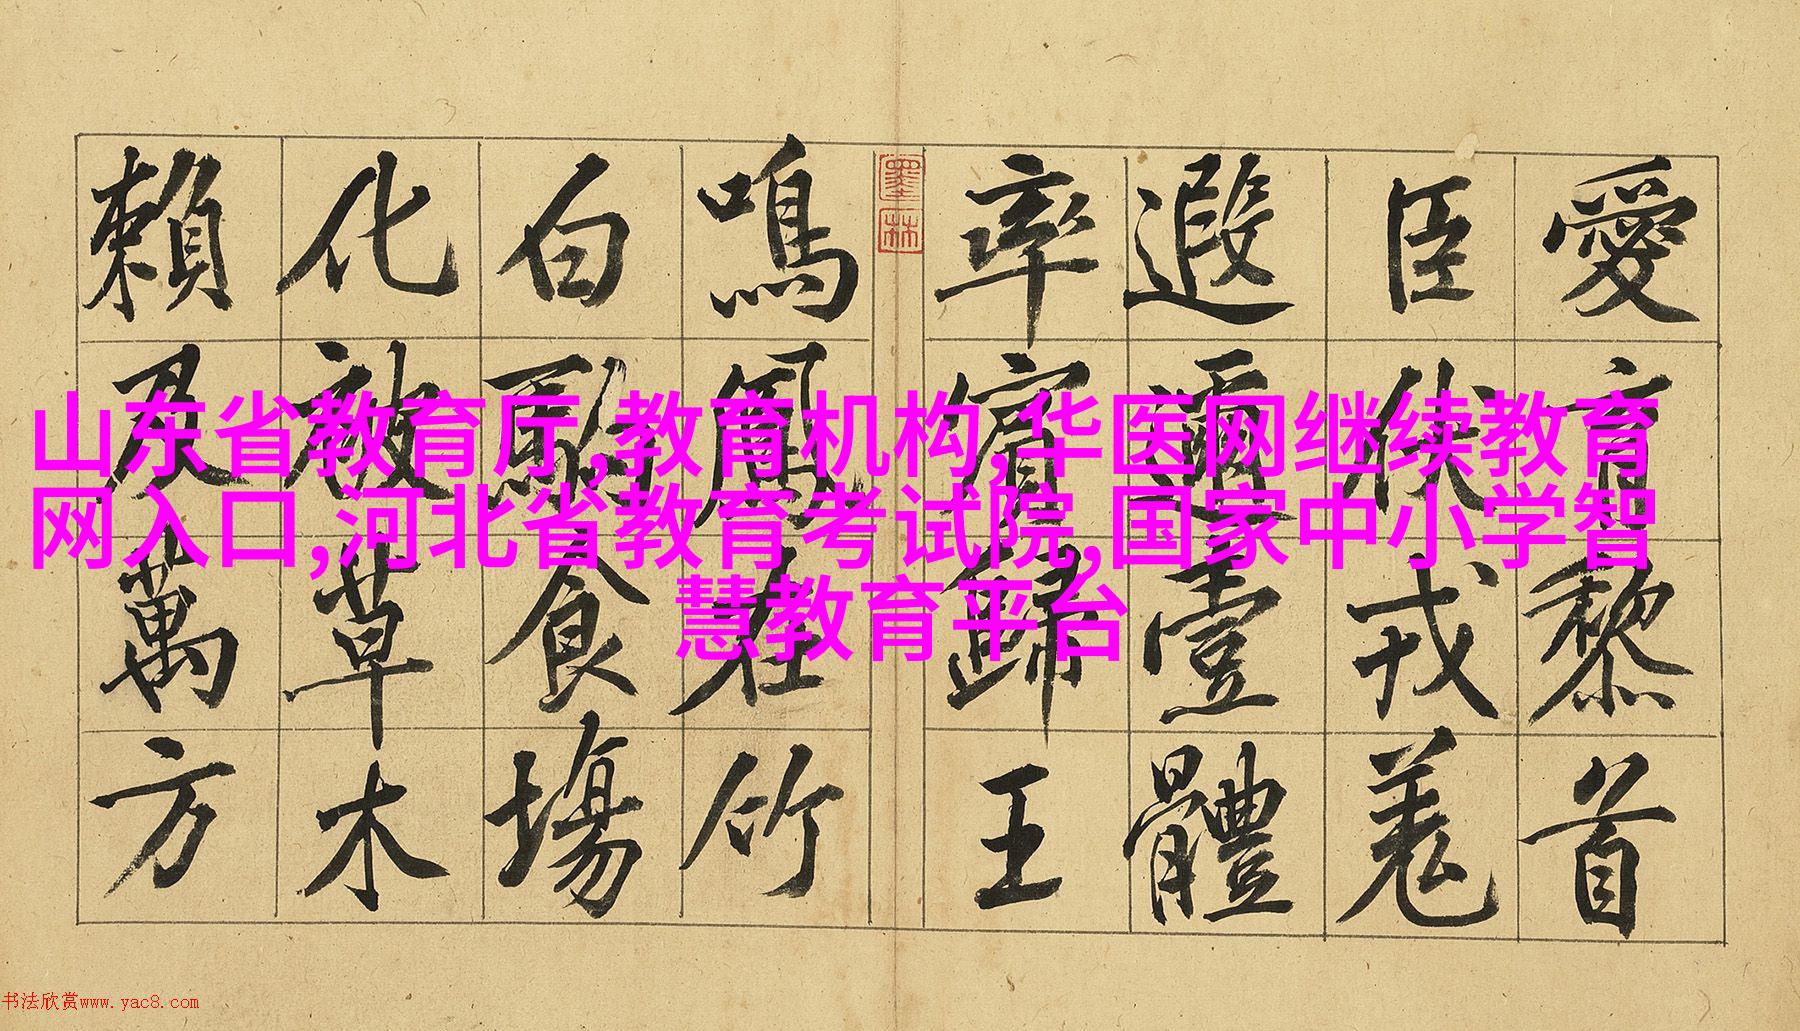 愛育黎首
臣伏戎羌
遐邇壹體
率賓歸王
鳴鳳在竹
白駒食場
化被草木
賴及萬方
墨林
山东省教育厅,教育机构,华医网继续教育
网入口,河北省教育考试院,国家中小学智
慧教育平台
书法欣赏www.yac8.com